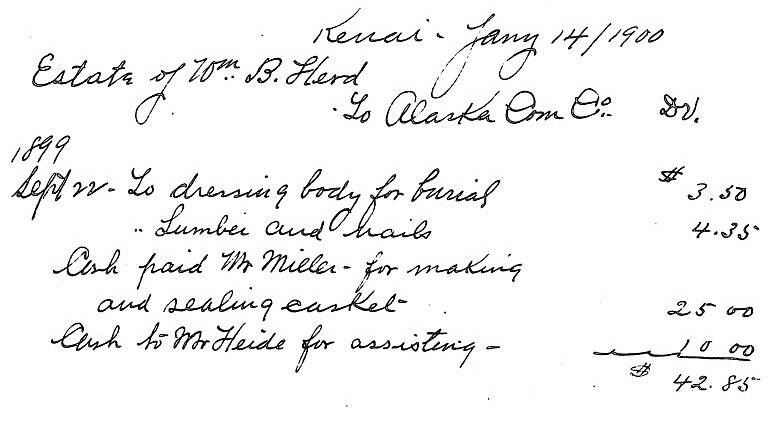 Kenai - Jany 14/1900
Estate of Wm. B. Herd
To Alaska Com Co. Dr.
1899
Sept 22 - To dressing body for burial $ 3.50
" Lumber and nails 4.35
Cash paid Mr Miller - for making
and sealing casket - 25 00
Cash to Mr Heide for assisting - 10 00
$ 42.85